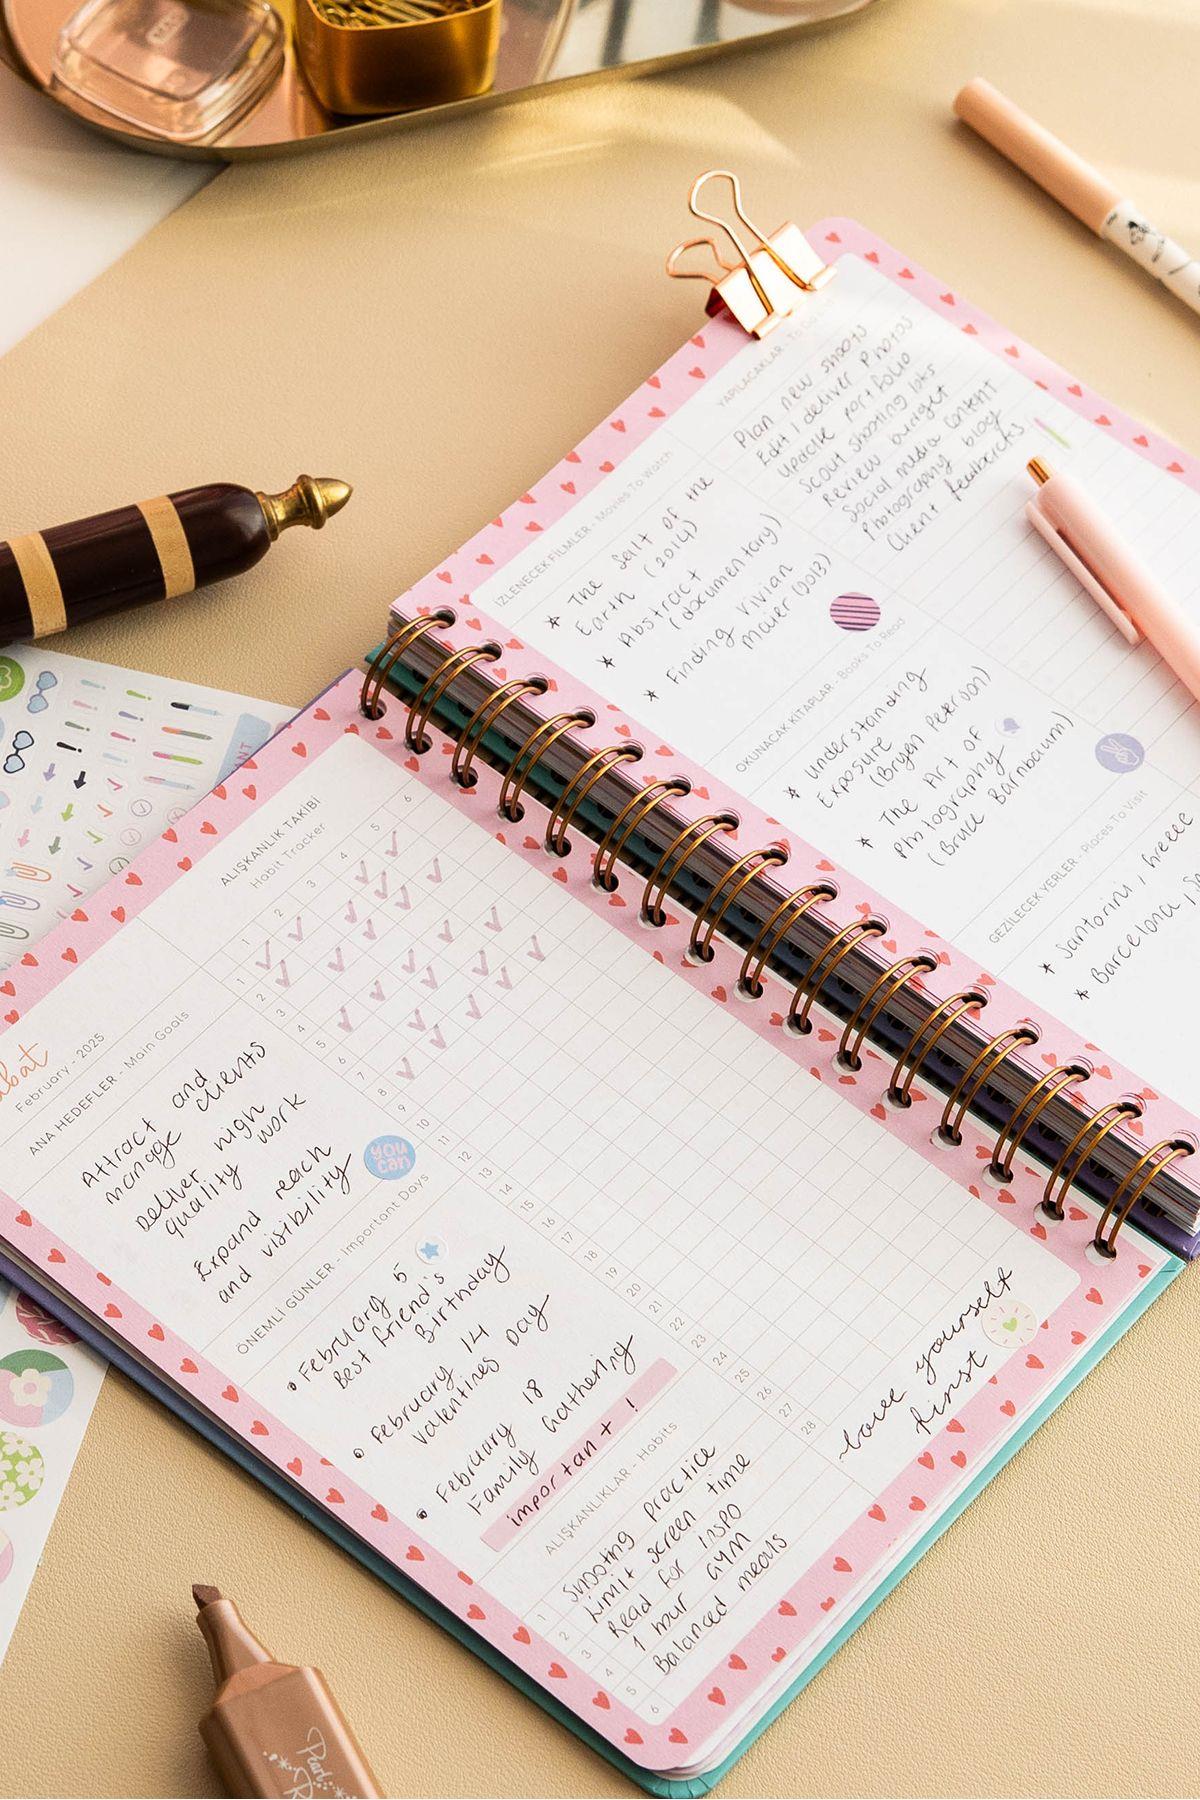 February - 2025
ANA HEDEFLER - Main Goals
Attract and
manage clients
Deliver high
quality work
Expand reach
and visibility
you
can
ÖNEMLİ GÜNLER - Important Days
February 5
Best friend's
Birthday
February 14
Valentines Day
February 18
Family Gathering
important!
ALIŞKANLIK TAKİBİ
Habit Tracker
1 2 3 4 5 6
1
2
3
4
5
6
7
8
9
10
11
12
13
14
15
16
17
18
19
20
21
22
23
24
25
26
27
28
ALIŞKANLIKLAR - Habits
1 Shooting practice
2 Limit screen time
3 Read for inspo
4 1 hour gym
5 Balanced meals
6
Love yourself
first
İZLENECEK FİLMLER - Movies To Watch
* The Salt of the
Earth (2014)
* Abstract
(documentary)
* Finding Vivian
Maier (2013)
OKUNACAK KİTAPLAR - Books To Read
* Understanding
Exposure
(Bryen Peterson)
* The Art of
Photography
(Bruce Barnbaum)
GEZİLECEK YERLER - Places To Visit
* Santorini, Greece
* Barcelona,
YAPILACAKLAR - To Do
Plan new shoots
Edit / deliver Photos
Update portfolio
Scout shooting locs
Review budget
Social media content
Photography blog
Client feedbacks
Pearl